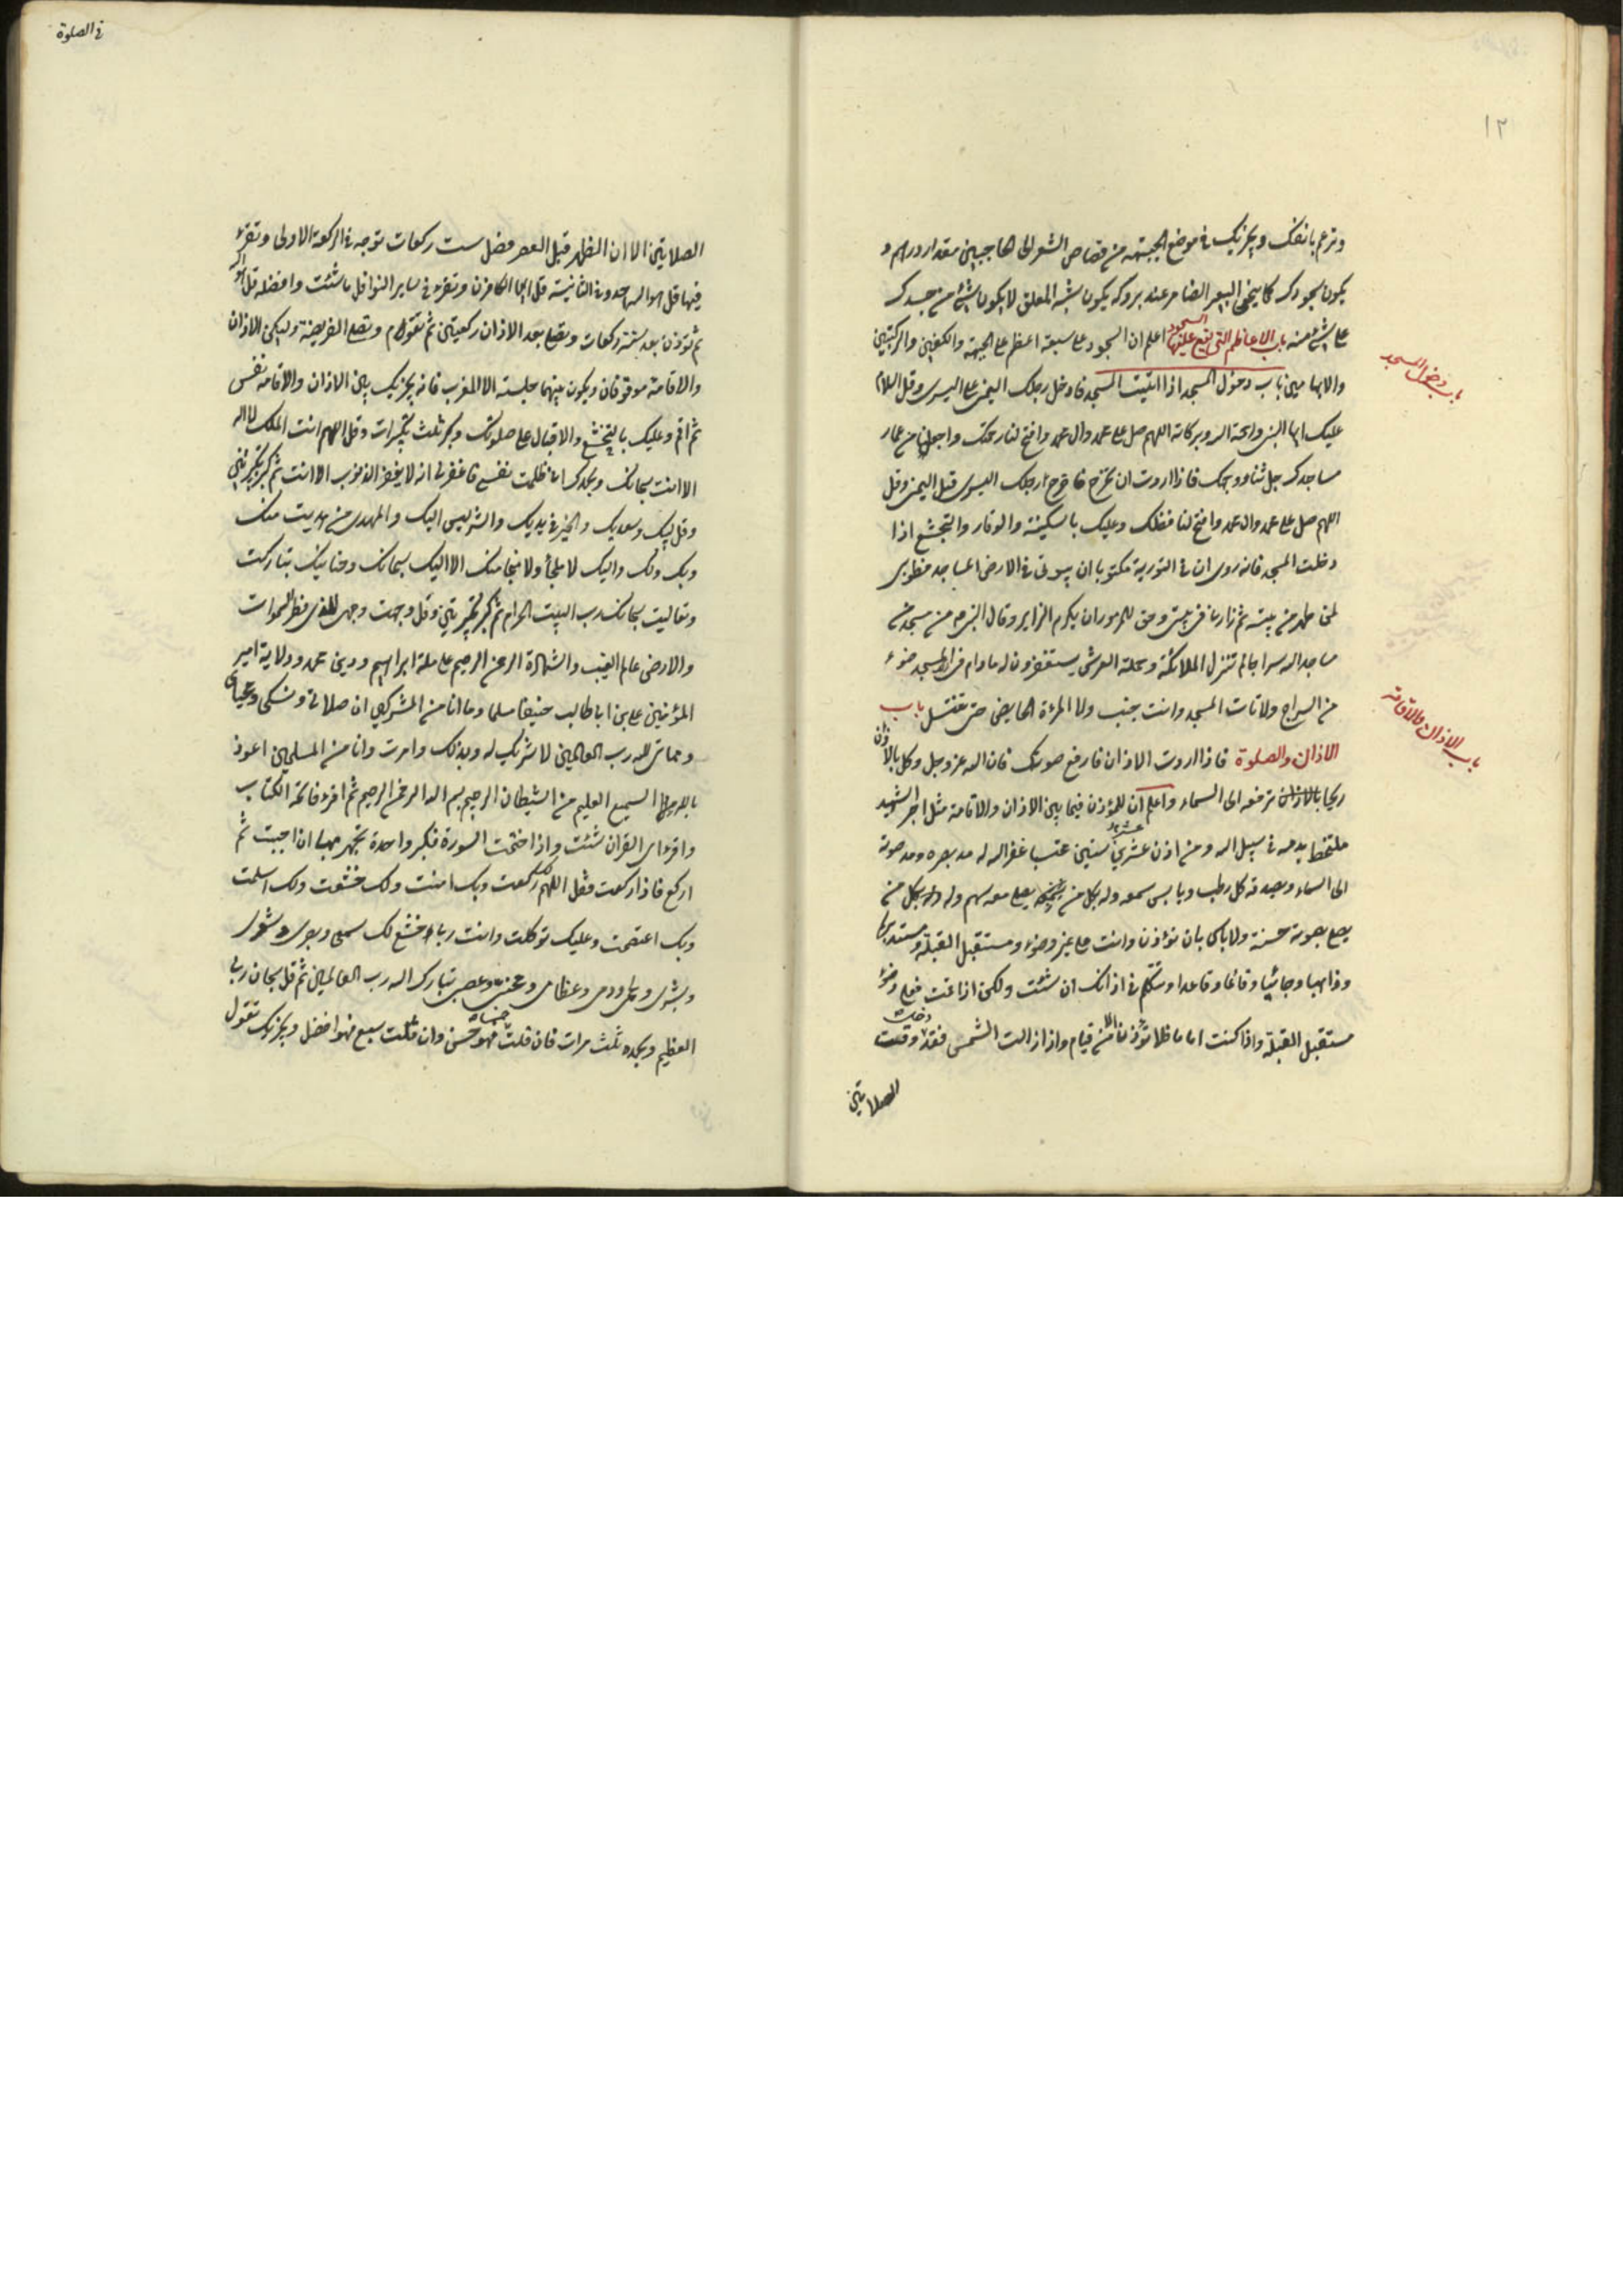 ١٢
وترغم بانفك ويجزيك في موضع الجبهة من قصاص الشعر الى الحاجبين مقدار درهم و
يكون سجودك كما يتخوى البعير الضامر عند بروكه يكون شبه المعلق لا يكون شئ من جسدك
على شئ منه باب الاعاظم التي يقع عليها السجود اعلم ان السجود على سبعة اعظم على الجبهة والكفين والركبتين
والابهامين باب دخول المسجد اذا اتيت المسجد فادخل رجلك اليمنى على اليسرى وقل السلام
باب دخول المسجد
عليك ايها النبى ورحمة الله وبركاته اللهم صل على محمد وال محمد وافتح لنا رحمتك واجعلنا من عمار
مساجدك جل ثناء وجهك فاذا اردت ان تخرج فاخرج رجلك اليسرى قبل اليمنى وقل
اللهم صل على محمد وال محمد وافتح لنا فضلك وعليك بالسكينة والوقار والتخشع اذا
دخلت المسجد فانه روى ان في التورية مكتوبا ان بيوتى في الارض المساجد فطوبى
لمن تطهر من بيته ثم زارنى في بيتى وحق للمزور ان يكرم الزاير وقال النبى ص من اسرج في مسجد من
مساجد الله سراجا لم تنزل الملائكة وحملة العرش يستغفرون له ما دام في المسجد ضوء
من السراج ولا تات المسجد وانت جنب ولا المرءة الحايض حتى تغتسل باب
باب الاذان والاقامة
الاذان والصلوة فاذا اردت الاذان فارفع صوتك فان الله عز وجل وكل بالاذان
ريحا بالاذان ترفعه الى السماء واعلم ان للمؤذن فيما بين الاذان والاقامة مثل اجر الشهيد
متشحط بدمه في سبيل الله ومن اذن عشر سنين محتسبا غفر الله له مد بصره ومد صوته
الى السماء ويصدقه كل رطب ويابس سمعه وله بكل من يصلى معه سهم وله بكل من
يصلى بصوته حسنة ولا باس بان تؤذن وانت على غير وضوء ومستقبل القبلة ومستدبرها
وذاهبا وجائيا وقائما وقاعدا وتتكلم في اذانك ان شئت ولكن اذا اقمت فعلى وضوء
مستقبل القبلة واذا كنت اماما فلا تؤذن الا من قيام واذا زالت الشمس فقد دخلت وقت
الصلاتين
في الصلوة
الصلاتين الا ان الظهر قبل العصر فصل ست ركعات توجه في الركعة الاولى وتقرء
فيها قل هو الله احد وفى الثانية قل ايها الكافرون وتقرء في ساير النوافل ما شئت وافضله قل هو الله
ثم تؤذن بعد ستة ركعات وتصلى بعد الاذان ركعتين ثم تقوم وتصلى الفريضة وليكن الاذان
والاقامة موقوفان ويكون بينهما جلسة الا المغرب فانه يجزيك بين الاذان والاقامة نفس
ثم اقم وعليك بالتخشع والاقبال على صلوتك وكبر ثلث تكبيرات وقل اللهم انت الملك لا اله
الا انت سبحانك وبحمدك انى ظلمت نفسى فاغفر لى انه لا يغفر الذنوب الا انت ثم كبر تكبيرتين
وقل لبيك وسعديك والخير في يديك والشر ليس اليك والمهدى من هديت منك
وبك ولك واليك لا ملجأ ولا منجا منك الا اليك سبحانك وحنانيك تباركت
وتعاليت سبحانك رب البيت الحرام ثم كبر تكبيرتين وقل وجهت وجهى للذى فطر السموات
والارض عالم الغيب والشهادة الرحمن الرحيم على ملة ابراهيم ودين محمد وولاية امير
المؤمنين على بن ابى طالب حنيفا مسلما وما انا من المشركين ان صلاتى ونسكى ومحياى
ومماتى لله رب العالمين لا شريك له وبذلك وامرت وانا من المسلمين اعوذ
بالله السميع العليم من الشيطان الرجيم بسم الله الرحمن الرحيم ثم اقرء فاتحة الكتاب
واقرء اى القران شئت واذا ختمت السورة فكبر واحدة تجهر بها ان احببت ثم
اركع فاذا ركعت فقل اللهم لك ركعت وبك امنت ولك خشعت ولك اسلمت
وبك اعتصمت وعليك توكلت وانت ربى خشع لك سمعى وبصرى وشعرى
وبشرى ولحمى ودمى وعظامى ومخى وعصبى تبارك الله رب العالمين ثم قل سبحان ربى
العظيم وبحمده ثلث مرات فان قلت خمسا فهو حسن وان قلت سبع فهو افضل ويجزيك تقول